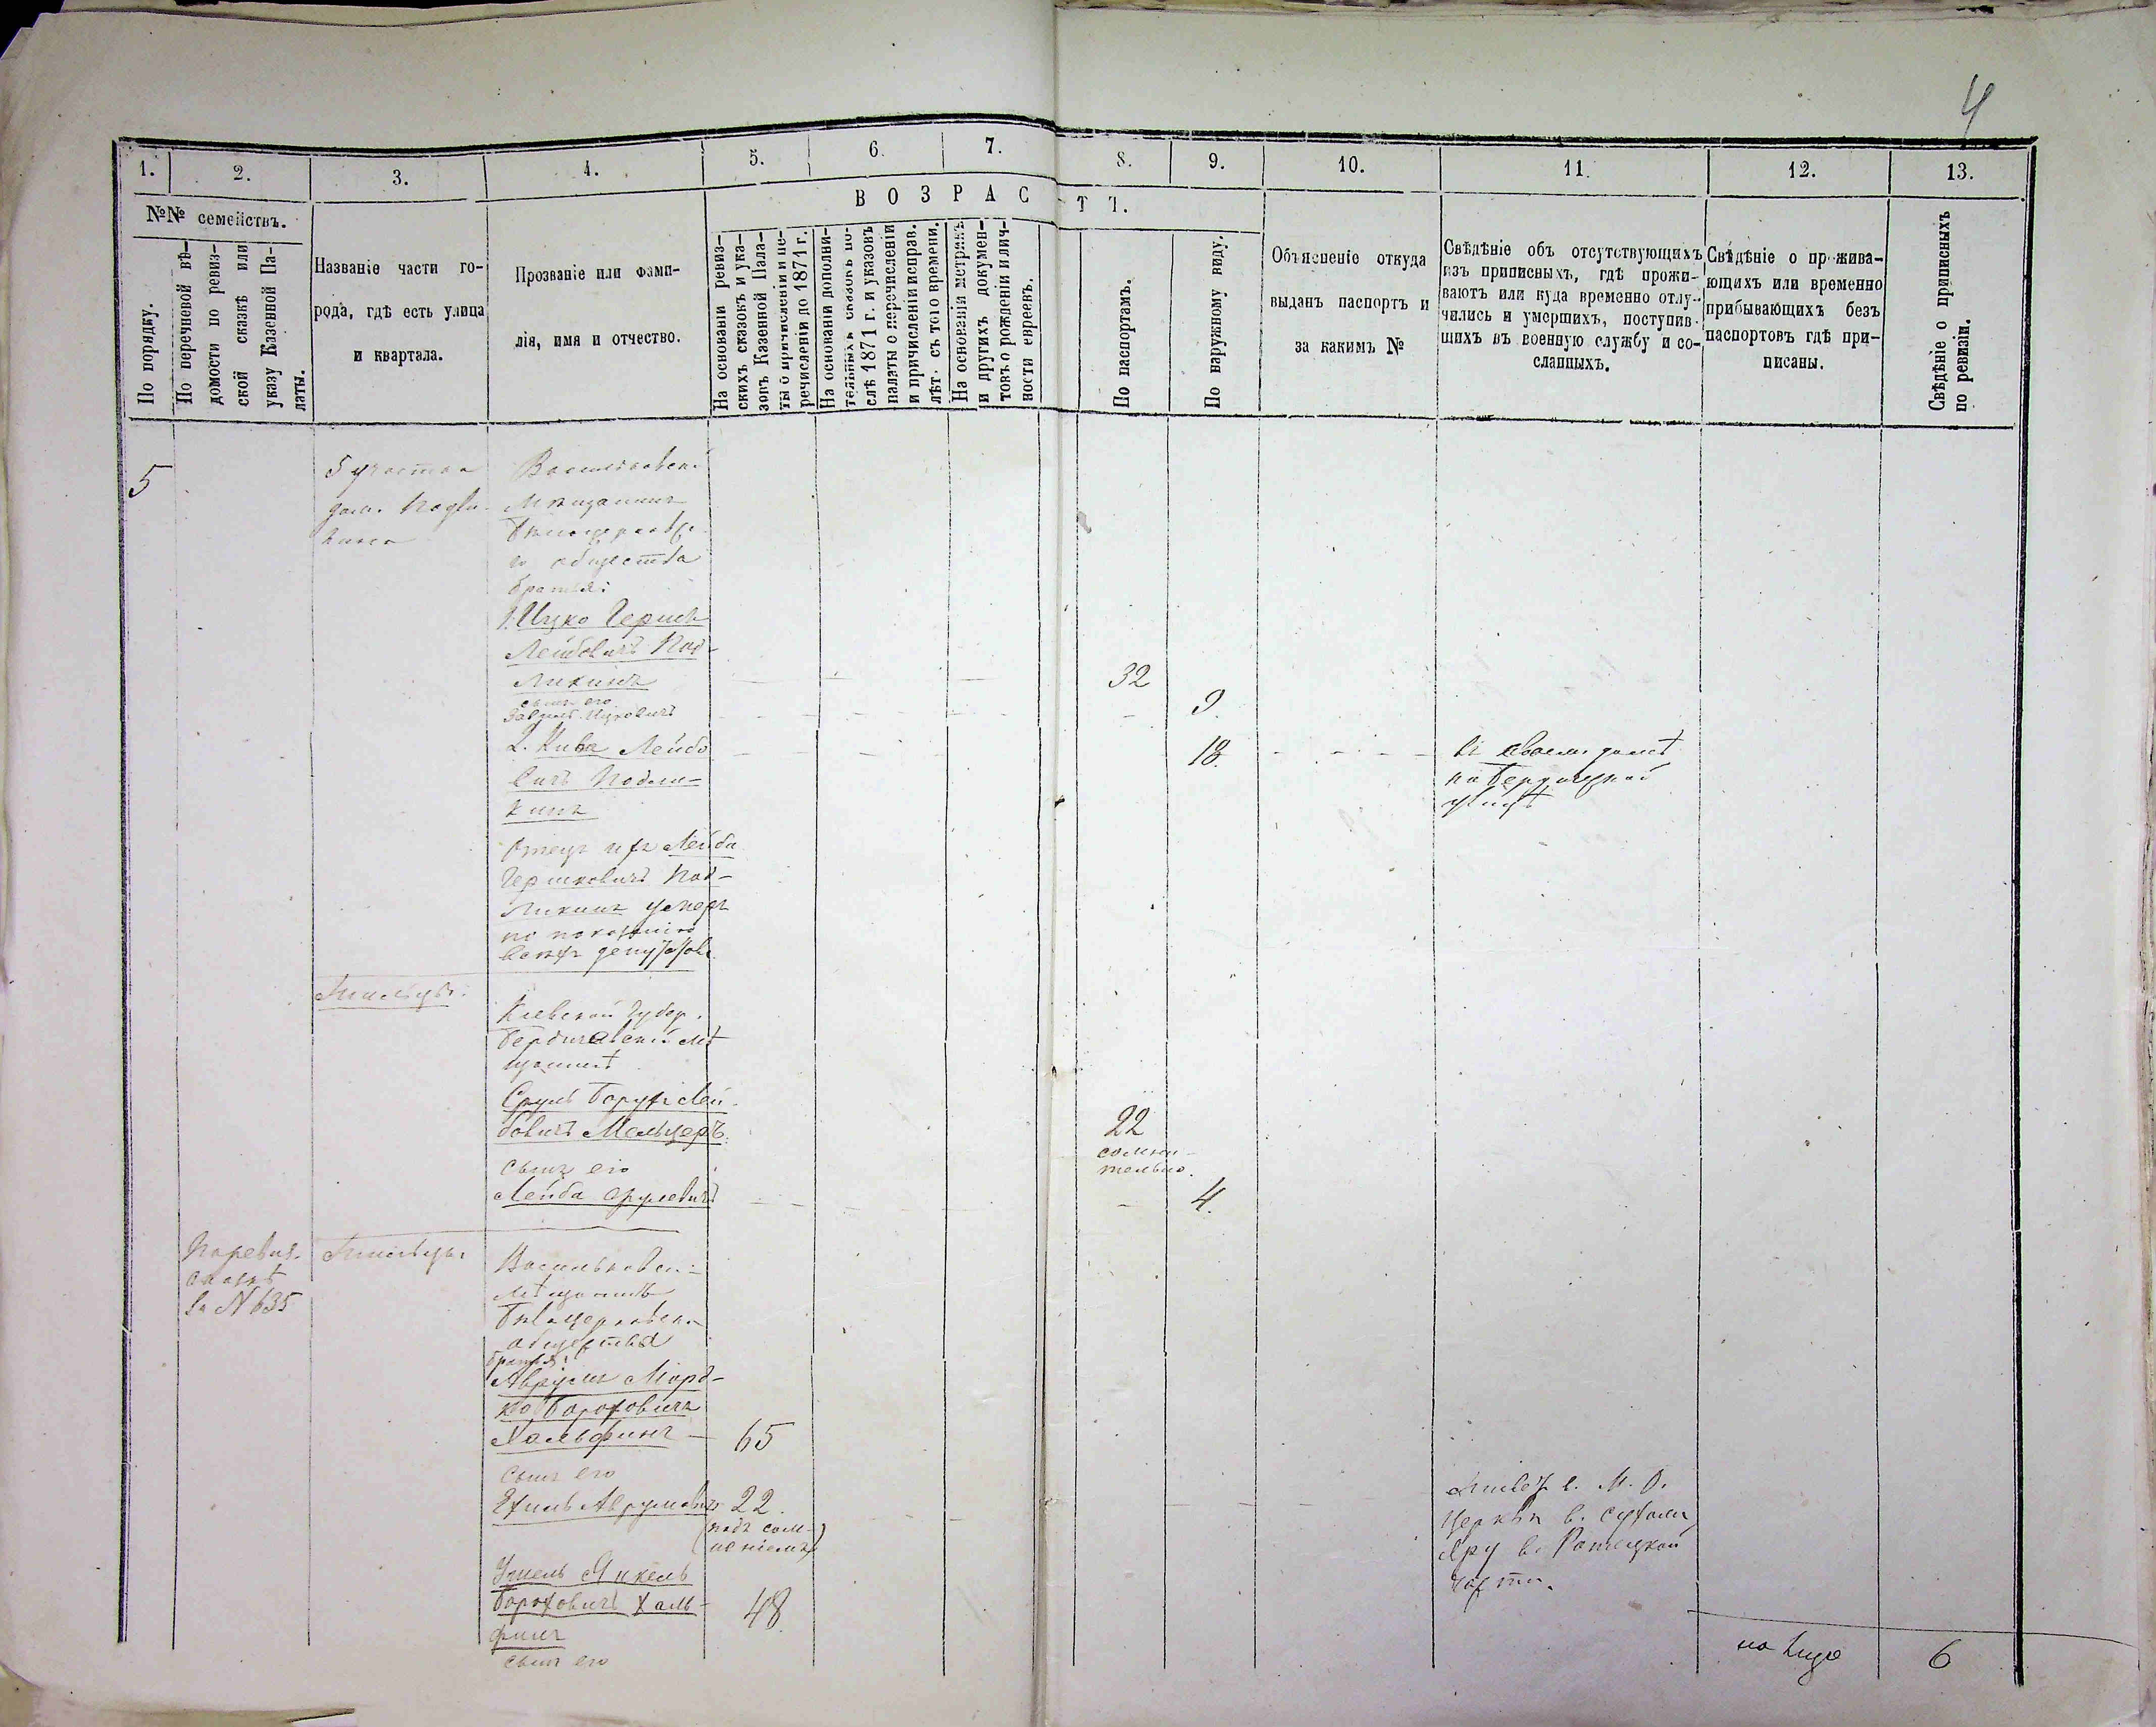 4
1. 2. 3. 4. 5. 6. 7. 8. 9. 10. 11. 12. 13.
№№ семействъ.
По порядку.
По перечневой вѣ-
домости по ревиз-
ской сказкѣ или
указу Казенной Па-
латы.
Названіе части го-
рода, гдѣ есть улица
и квартала.
Прозваніе или фами-
лія, имя и отчество.
ВОЗРАСТЪ.
На основаніи ревиз-
скихъ сказокъ и ука-
зовъ Казенной Пала-
ты о причисленіи и пе-
речисленіи до 1871 г.
На основаніи дополни-
тельныхъ сказокъ по-
слѣ 1871 г. и указовъ
палаты о перечисленіи
и причисленіи исправ.
лѣт. съ того времени.
На основаніи метрикъ
и другихъ докумен-
товъ о рожденіи и лич-
ности евреевъ.
По паспортамъ.
По наружному виду.
Объясненіе откуда
выданъ паспортъ и
за какимъ №
Свѣдѣніе объ отсутствующихъ
изъ приписныхъ, гдѣ прожи-
ваютъ или куда временно отлу-
чились и умершихъ, поступив-
шихъ въ военную службу и со-
сланныхъ.
Свѣдѣніе о прожива-
ющихъ или временно
прибывающихъ безъ
паспортовъ гдѣ при-
писаны.
Свѣдѣніе о приписныхъ
по ревизіи.
5
5 участка
дом.
Васильковскій
Мѣщанинъ
Бѣлоцерковс
го общества
братья:
1. Ицко Гершъ
Лейбовичъ Под-
ликинъ
32
сынъ его
Ицковичъ
9.
2. Кива Лейбо
вичъ Подли-
кинъ
18.
въ своемъ домѣ
на
улицѣ
Отецъ ихъ Лейба
Гершковичъ Под-
ликинъ умеръ
по показанію
всѣхъ депутатовъ.
Кіевской Губер.
Бердичевскій мѣ
щанинъ
Сруль Борухъ Лей-
бовичъ Мельцеръ.
22
сомни-
тельно.
сынъ его
Лейба Срулевичъ
4.
По ревиз.
сказкѣ
за № 635
Васильковск
мѣщанинъ
Бѣлоцерковск
общества
братья:
Аврумъ Морд-
ко Бороховичъ
Хальфинъ
65
сынъ его
Ехиль Аврумовичъ
22.
(подъ сом-
нѣніемъ)
церкви в.
Яру в.
части.
Ушель Янкель
Бороховичъ Халь-
финъ
48
сынъ его
на лицо
6